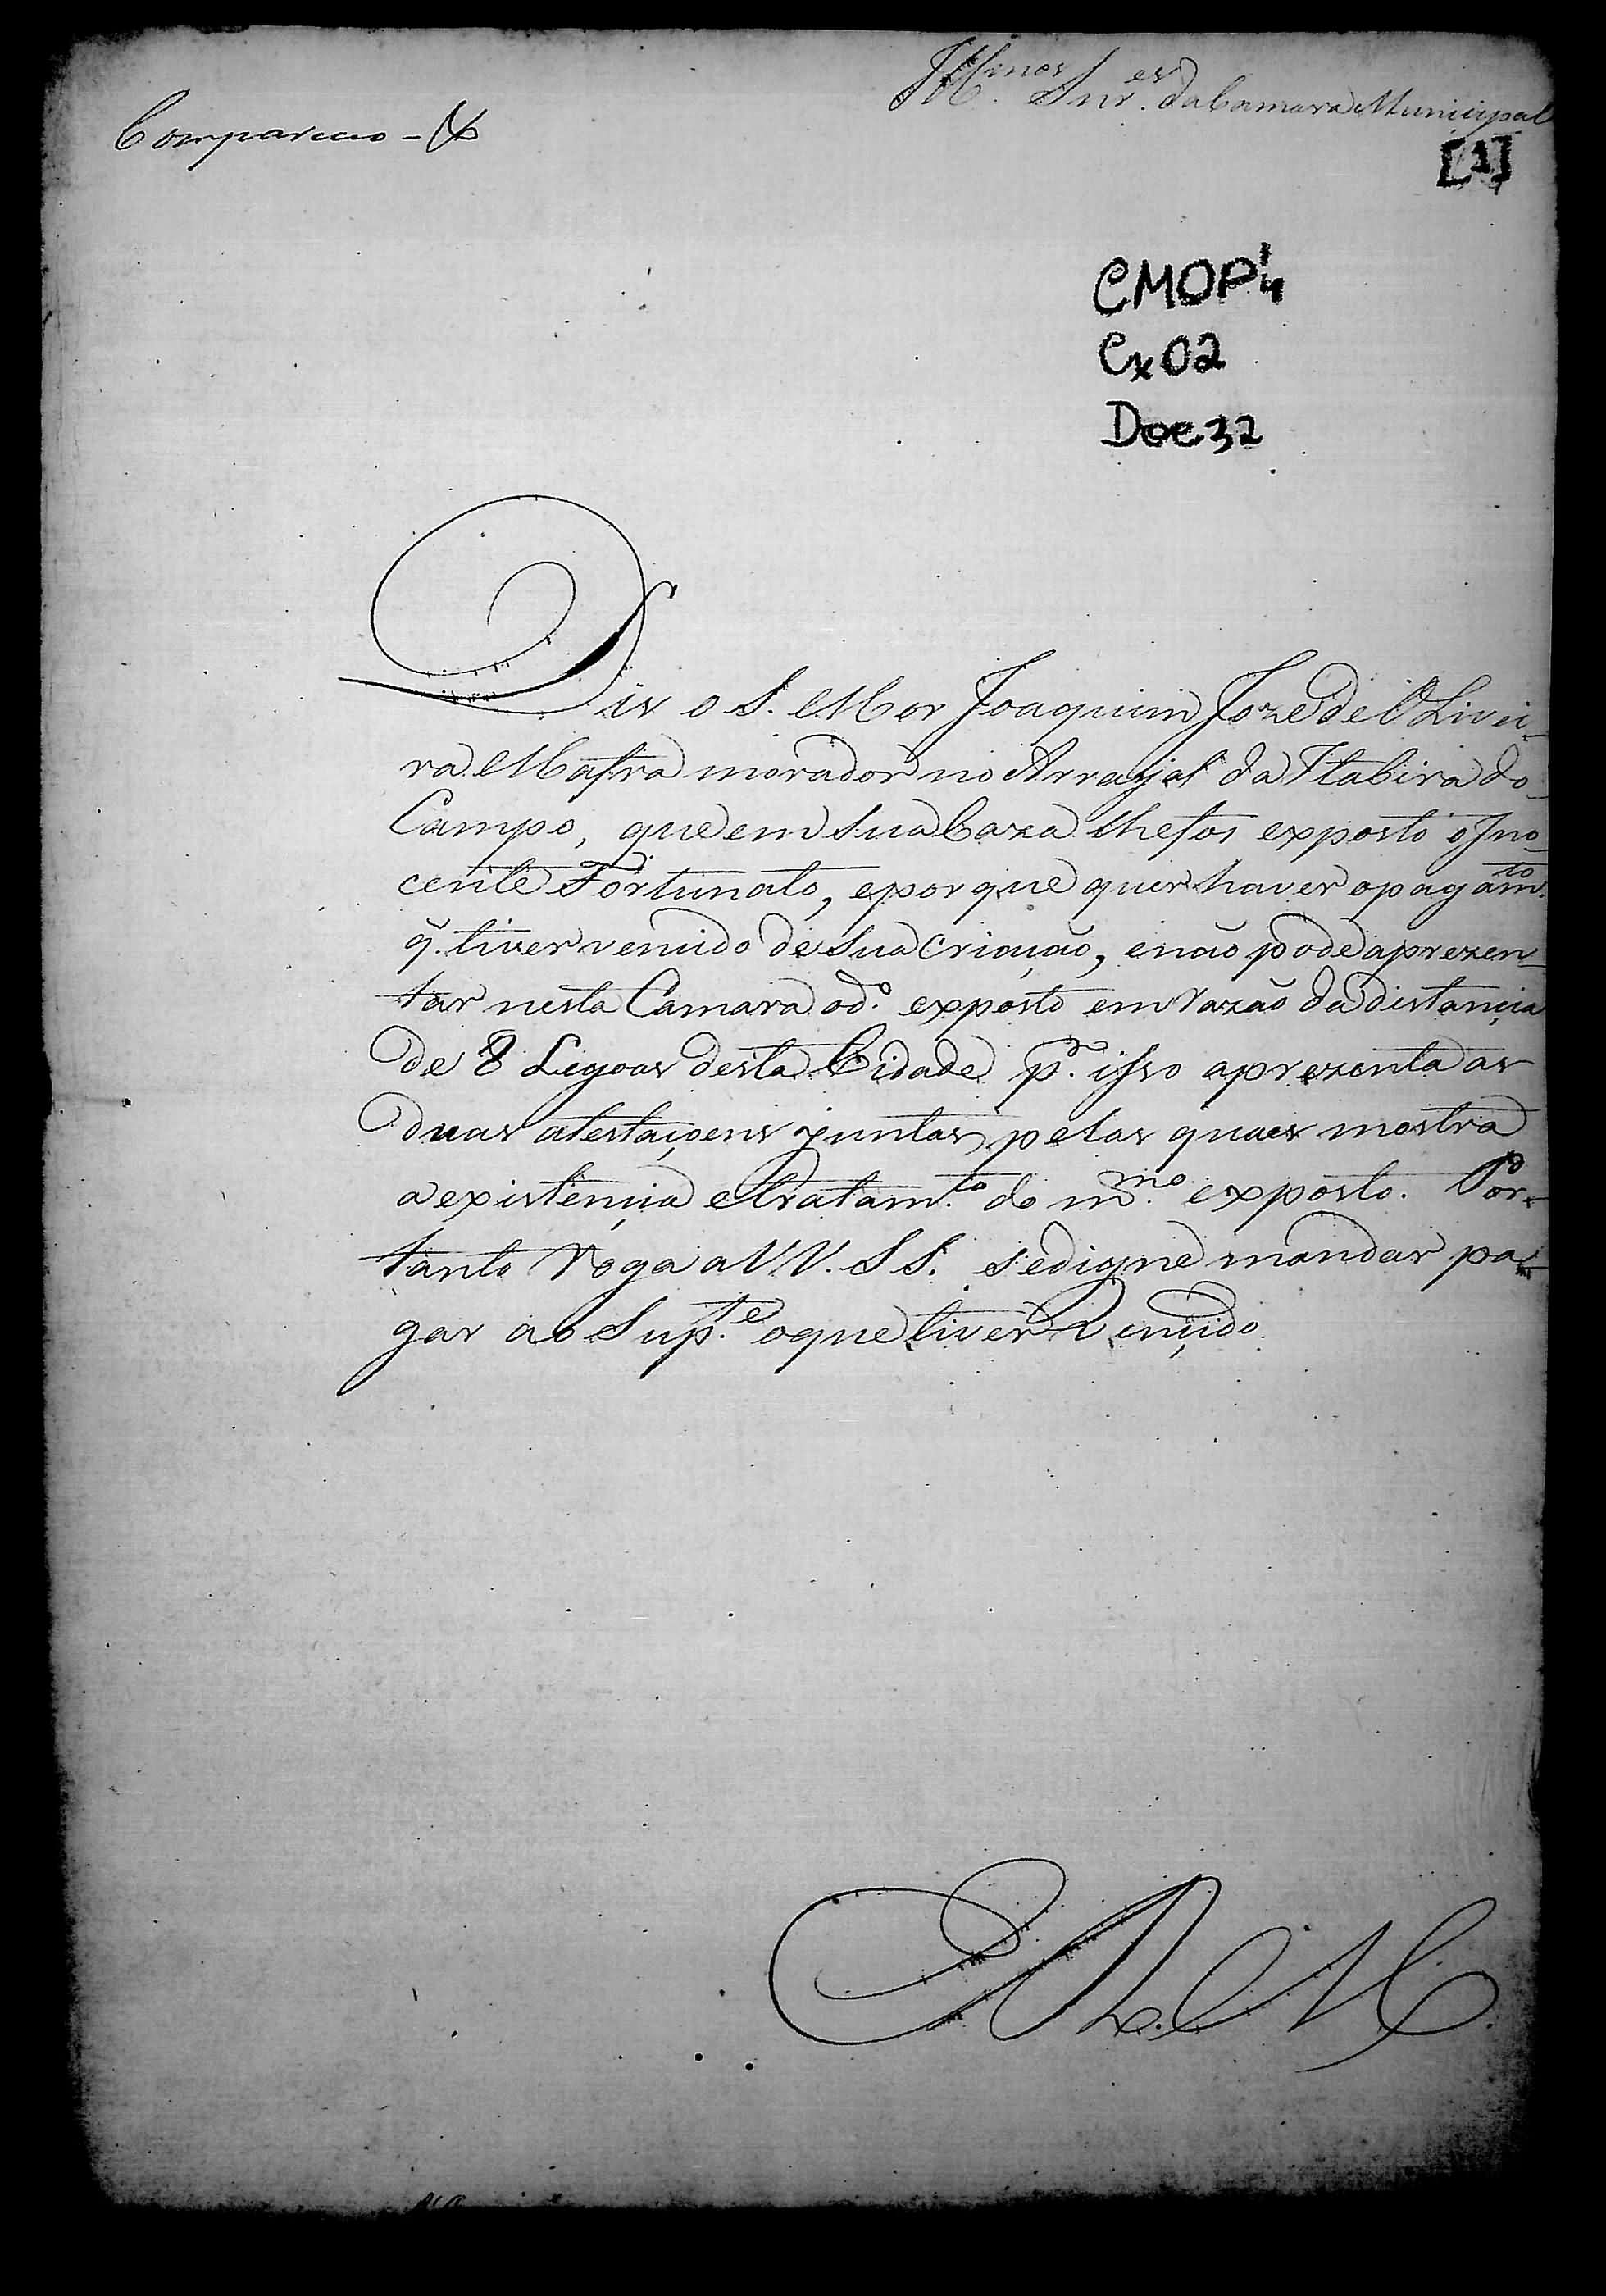 Ill.mos Snr.es da Camara Municipal
Compareceo -
[1]
CMOP
Cx02
Doc 32
Diz o S. Mor Joaquim Joze de OLivei-
ra Mafra morador no Arrayal da Itabira do
Campo, que em sua Caza lhe foi exposto o Ino-
cente Fortunato, e por que quer haver o pagam.to
q̃. tiver vencido de sua criaução, e não pode aprezen-
tar nesta Camara o d.o exposto em razão da distançia
de 8 Legoas desta Cidade p.r isso aprezenta as
duas atestaçoens juntas pelas quaes mostra
a existençia e tratam.to do m.mo exposto. Por-
tanto Roga a VV. SS. se digne mandar pa-
gar ao Sup.te o que tiver Vençido
R. M.